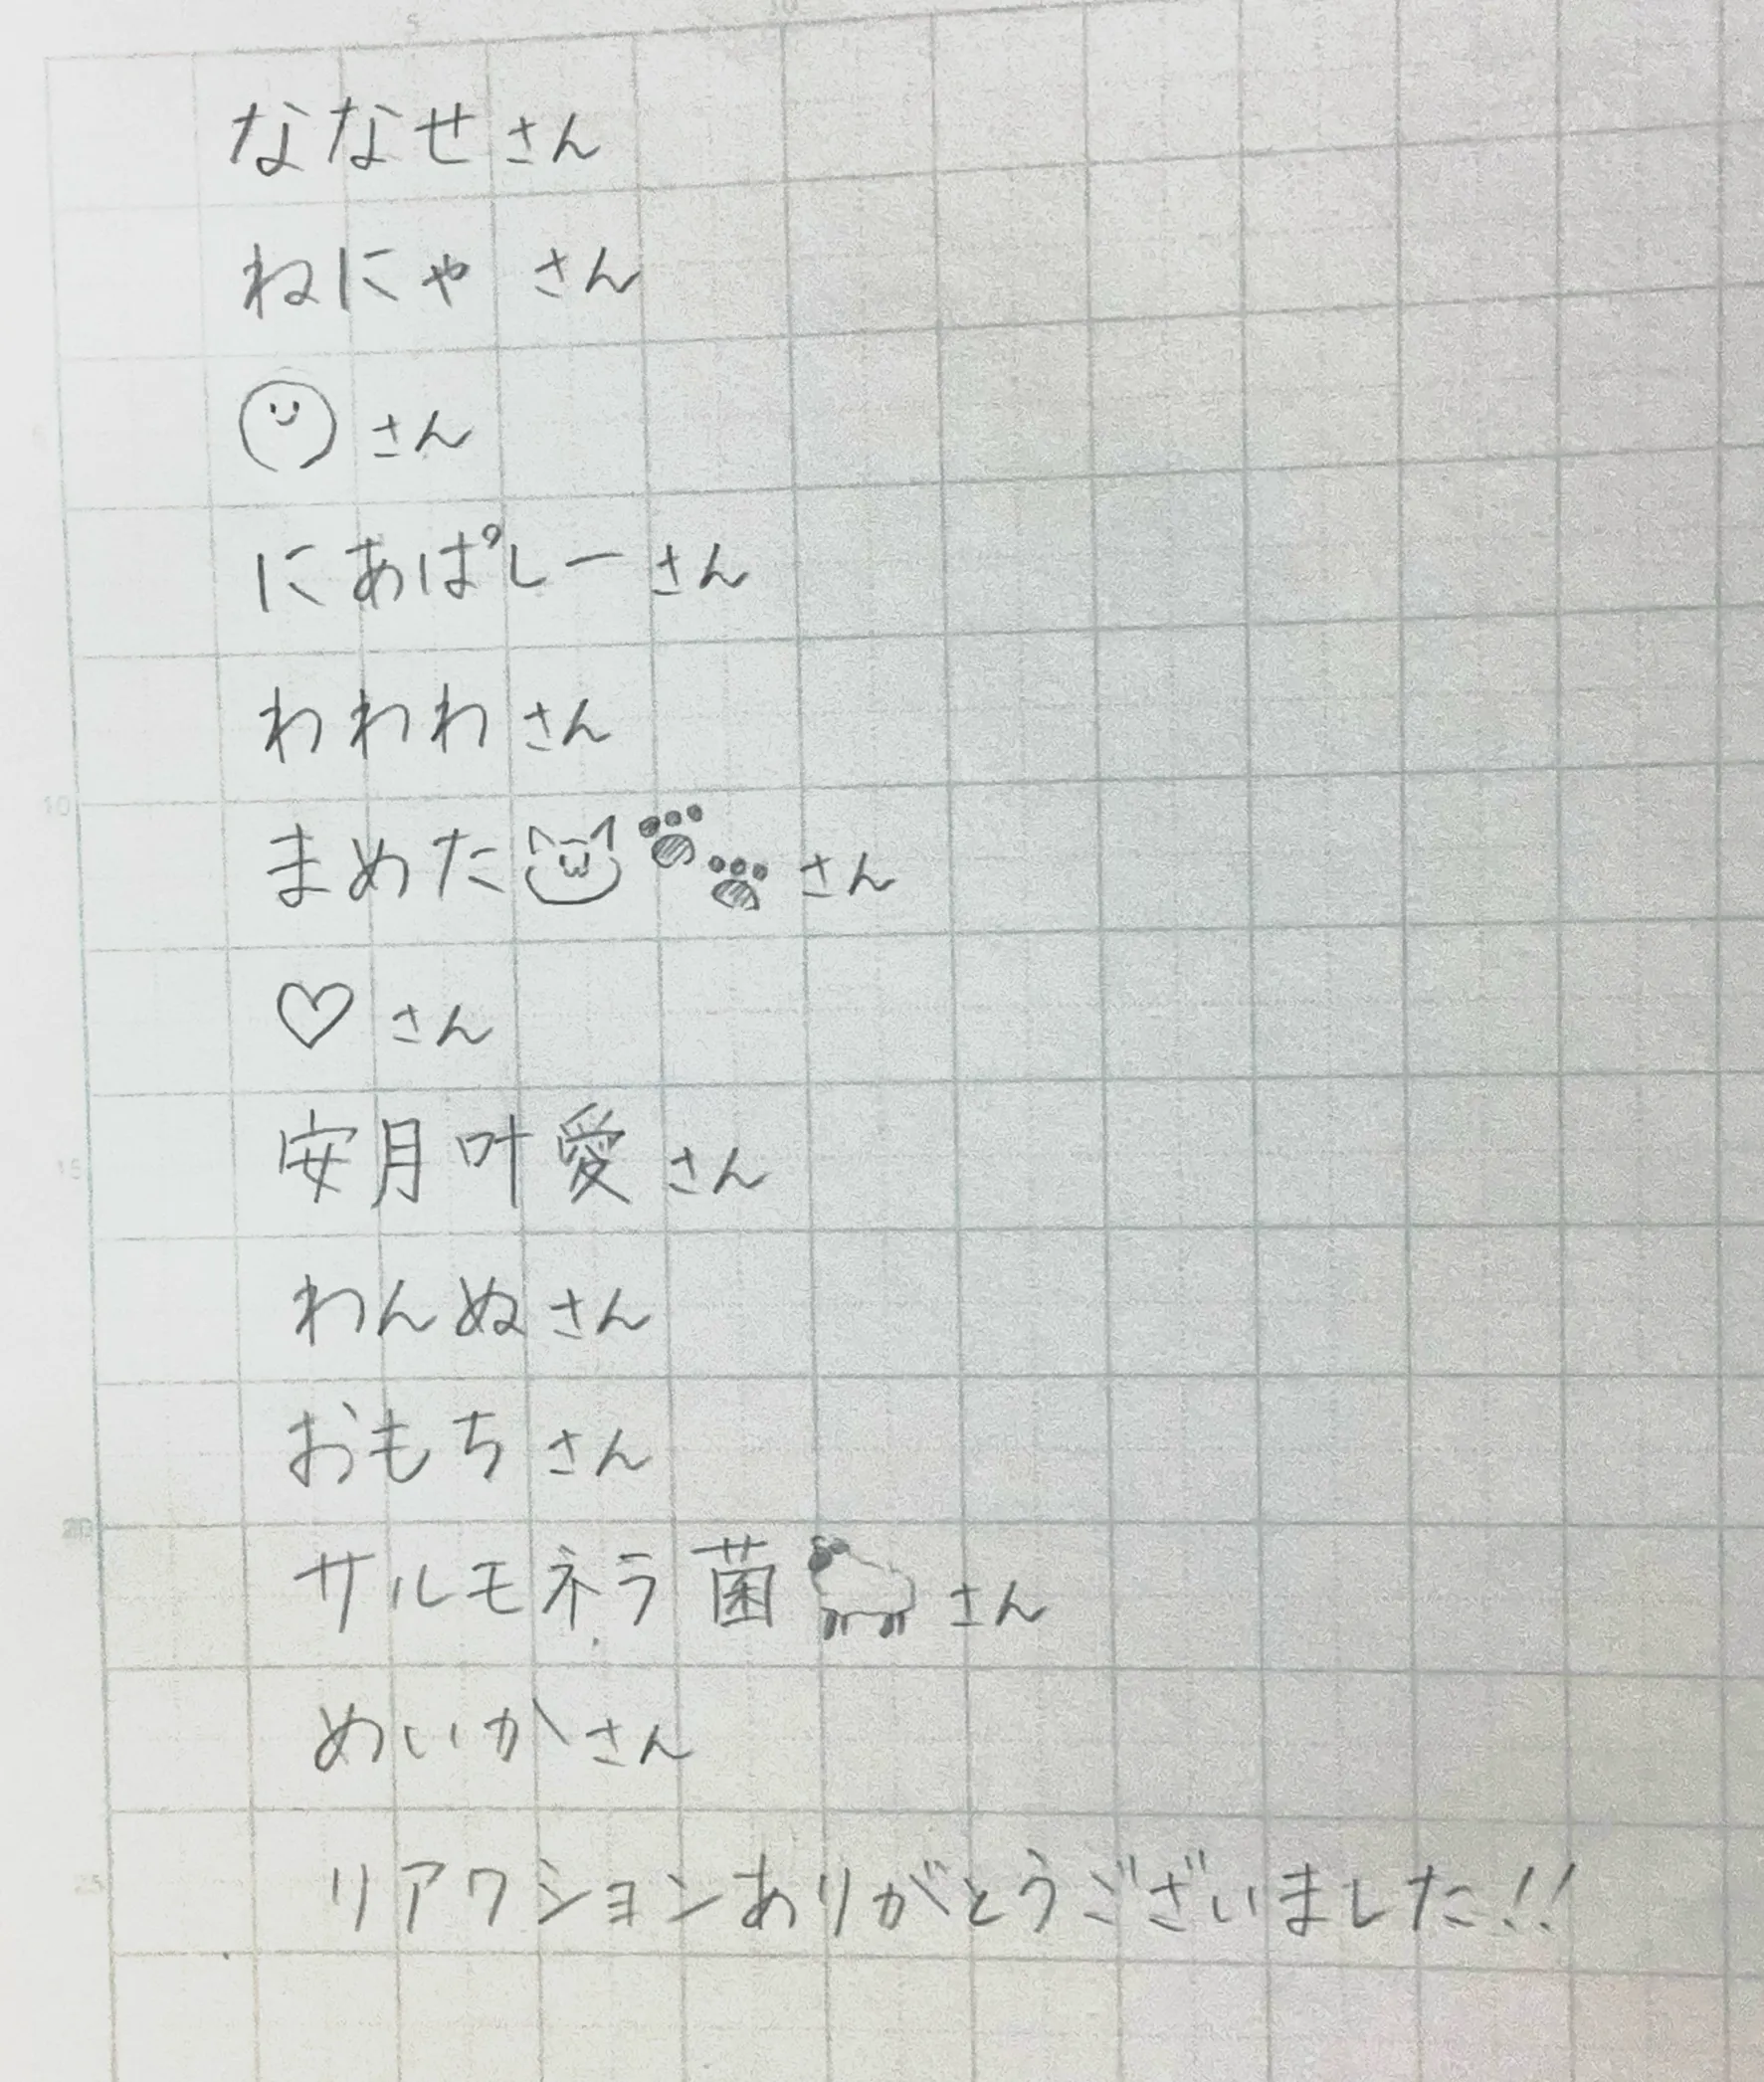 ななせさん
ねにゃさん
さん
にあぱしーさん
わわわさん
まめたさん
♡さん
安月叶愛さん
わんぬさん
おもちさん
サルモネラ菌さん
めいかさん
リアクションありがとうございました!!